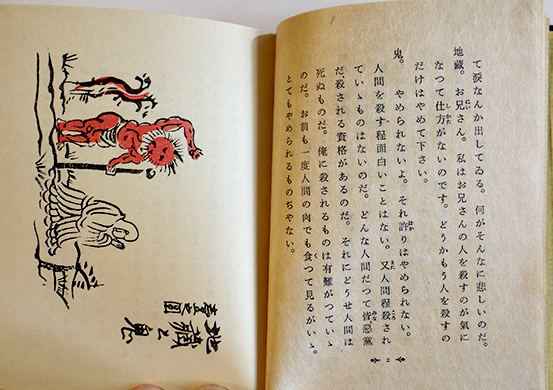 て淚なんか出してゐる。何がそんなに悲しいのだ。
地藏。お兄さん。私はお兄さんの人を殺すのが氣に
なつて仕方がないのです。どうかもう人を殺すの
だけはやめて下さい。
鬼。やめられないよ。それ許りはやめられない。
人間を殺す程面白いことはない。又人間程殺され
ていゝものはないのだ。どんな人間だつて皆惡黨
だ。殺される資格があるのだ。それにどうせ人間は
死ぬものだ。俺に殺されるものは有難がつていゝ
のだ。お前も一度人間の肉でも食つて見るがいゝ。
とてもやめられるものぢやない。
2
地藏と鬼